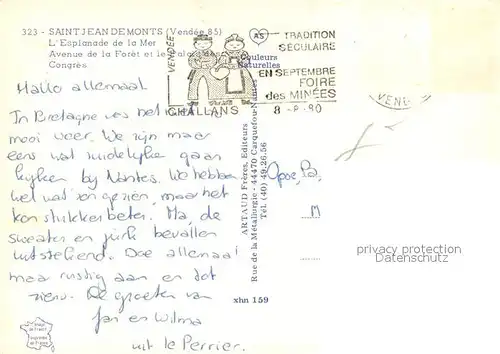 323 - SAINT JEAN DE MONTS (Vendée 85)
L'Esplanade de la Mer
Avenue de la Forêt et le
Congrès
Couleurs
Naturelles
VENDÉE
CHALLANS
AS
TRADITION
SÉCULAIRE
EN SEPTEMBRE
FOIRE
des MINÉES
8 -8-80
VENDÉE
Hallo allemaal
In Bretagne was het
mooi weer. We zijn maar
eens wat zuidelijker gaan
kijken bij Nantes. We hebben
het wat en gezien, maar het
kon stukken beter. Ma, de
sweater en jurk bevallen
uitstekend. Doe allemaal
maar rustig aan en tot
ziens. De groeten van
Jan en Wilma
uit le Perrier.
Opoe, Pa,
M
ARTAUD Frères, Editeurs
Rue de la Métallurgie - 44470 Carquefou-Nantes
Tél. (40) 49.26.56
xhn 159
privacy protection
Datenschutz